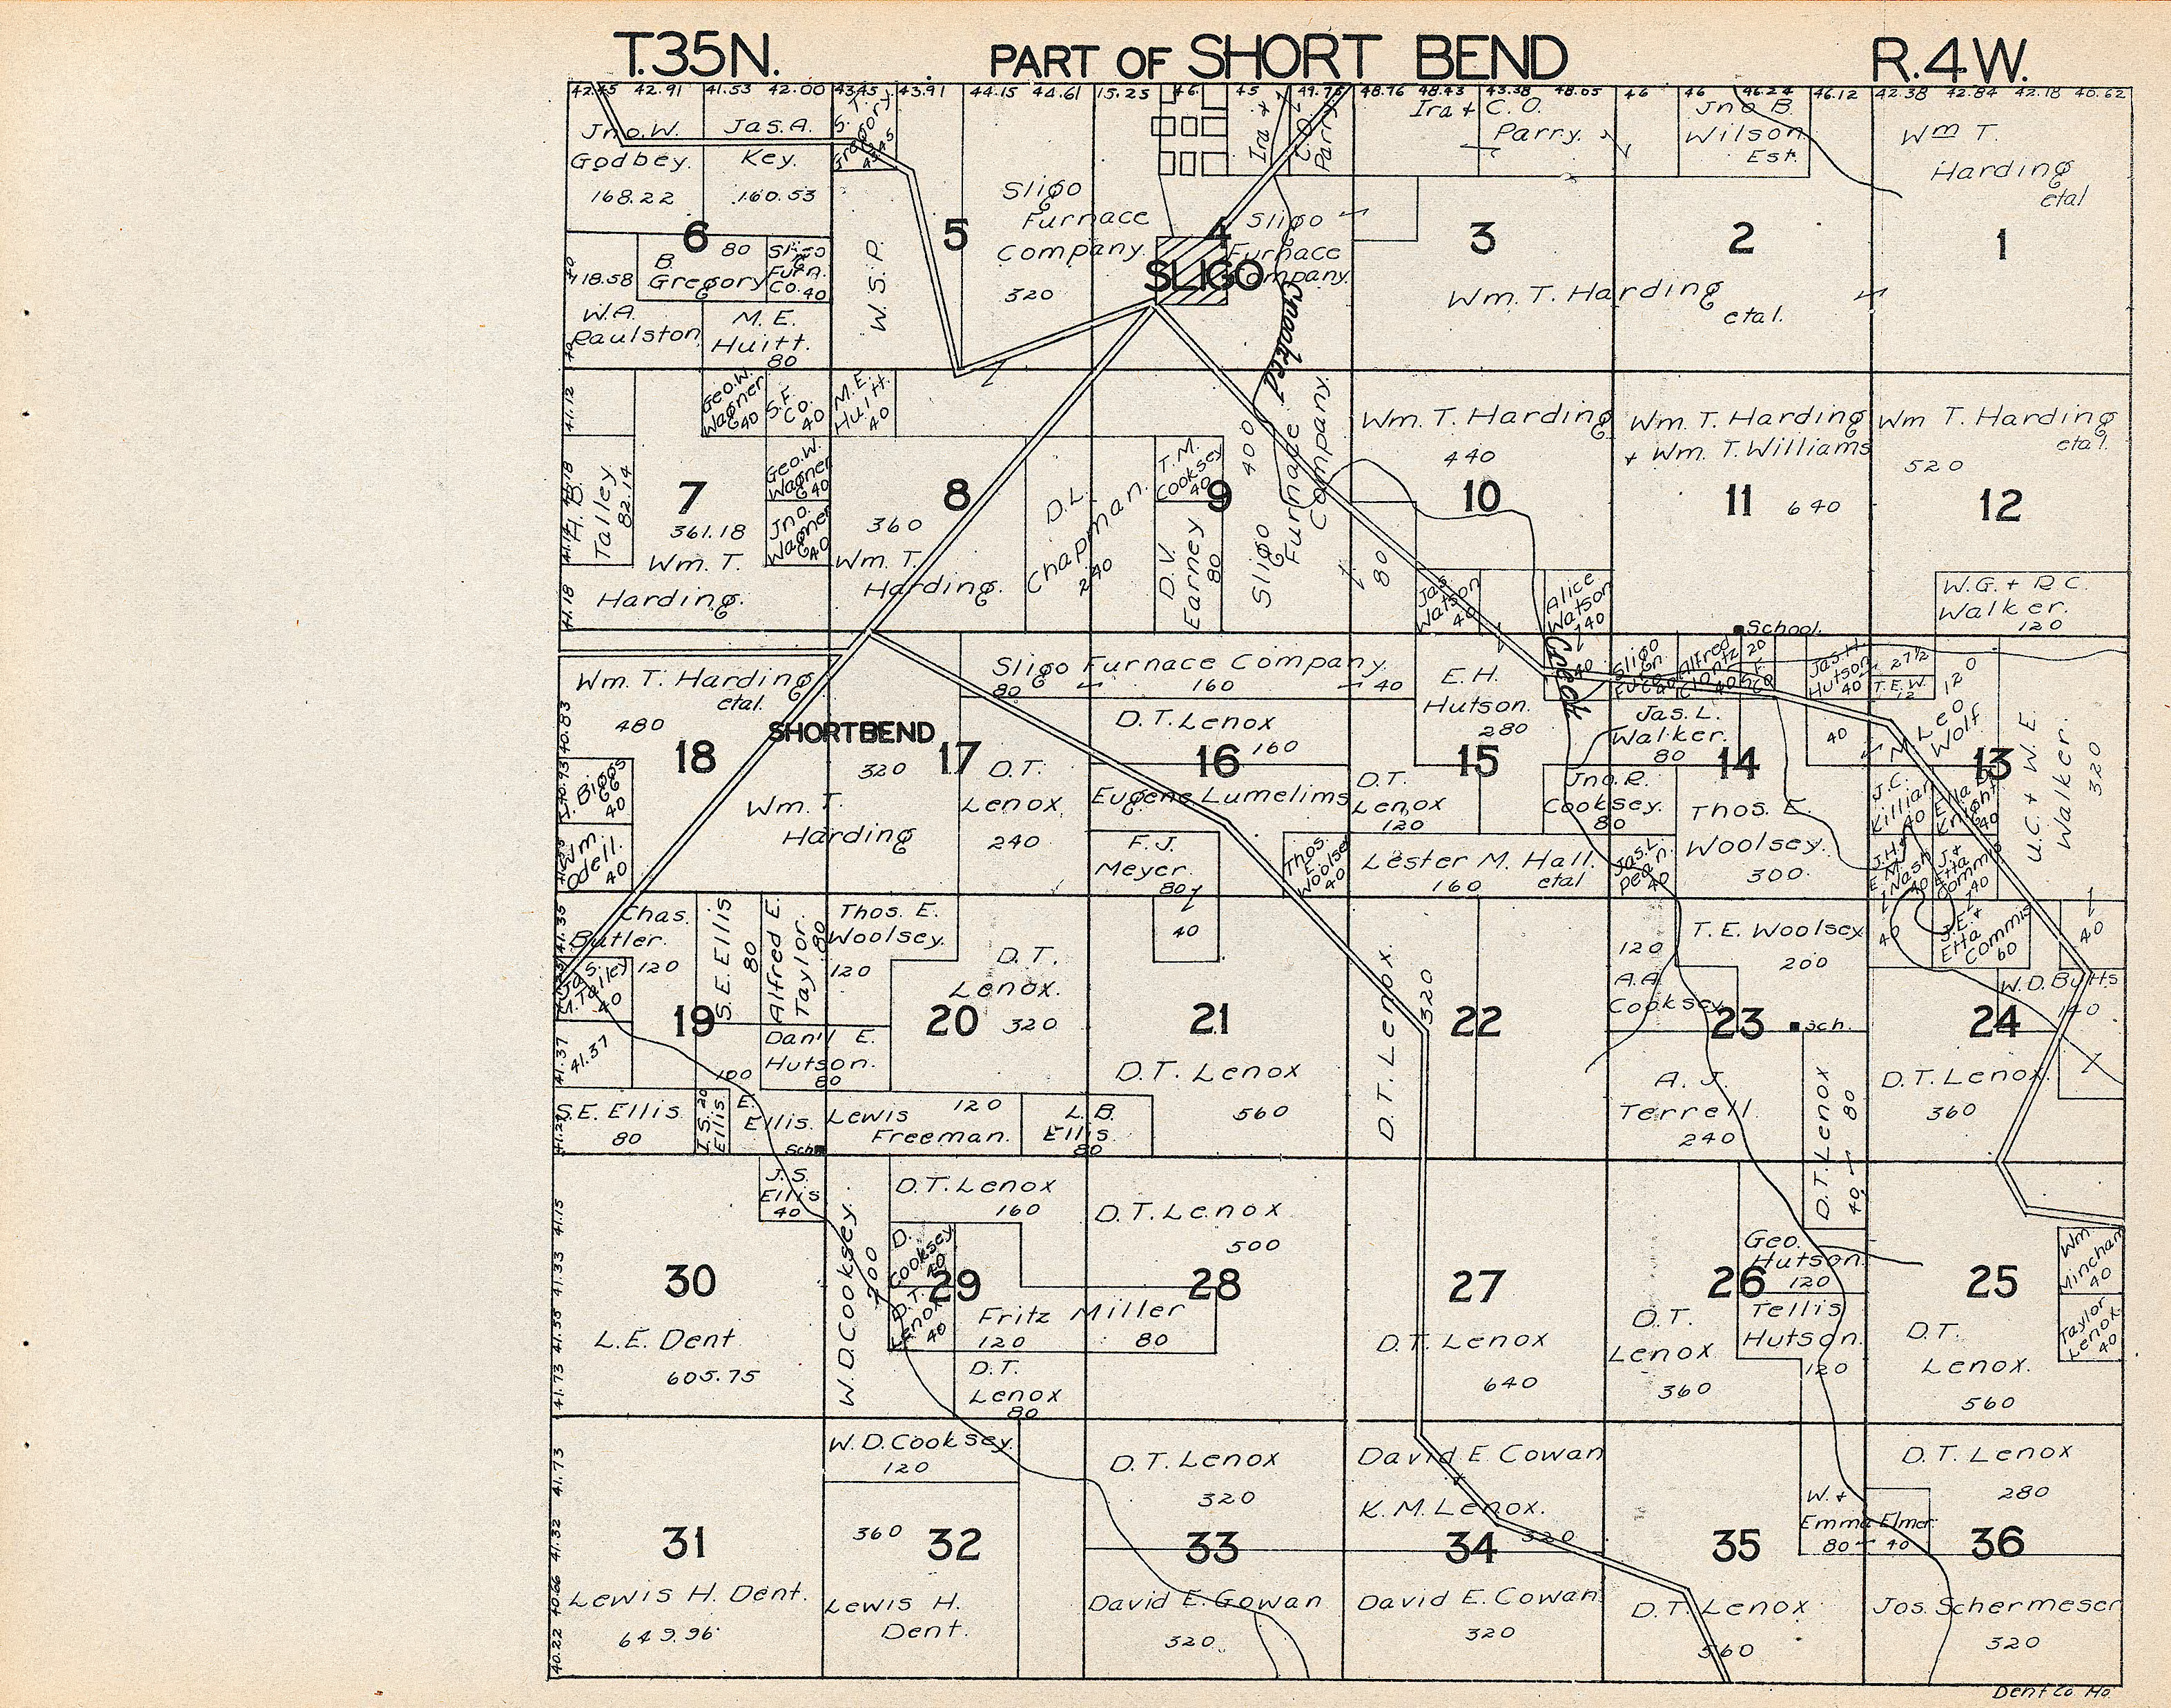 T.35N. PART OF SHORT BEND R.4W.
42.45 42.91 41.53 42.00 43.45 43.91 44.15 44.61 15.25 46. 45 49.75 48.76 48.43 43.38 48.05 46 46 46.24 46.12 42.38 42.84 42.18 40.62
Jno. W.
Godbey.
168.22
Jas. A.
Key.
160.53
S. T.
Gregory
43.45
W. S. P.
5
Sligo
Furnace
Company
320
Ira +
C. O.
Parry
4
Sligo
Furnace
Company.
SLIGO
Crooked
Ira + C. O.
Parry.
3
Jno. B.
Wilson
Est.
2
Wm. T. Harding
etal.
Wm T.
Harding
etal
1
6
118.58
B.
Gregory
80
Sligo
Furn.
Co. 40
W. A.
Paulston
M. E.
Huitt.
80
41.12
Geo. W.
Wagner
40
S. F.
Co.
40
M. E.
Huitt.
40
H. B.
Talley
82.14
7
361.18
Wm. T.
Harding.
41.18
Geo. W.
Wagner
40
Jno.
Wagner
40
8
360
Wm. T.
Harding.
D. L.
Chapman.
240
T. M.
Cooksey
40
9
D. V.
Earney
80
400
Sligo
Furnace
Company.
Wm. T. Harding
440
10
80
Jas.
Watson
40
Alice
Watson
40
Wm. T. Harding
+ Wm. T. Williams
11 640
Wm T. Harding
etal.
520
12
W. G. + R. C.
Walker.
120
School.
Wm. T. Harding
etal.
480
18
SHORTBEND
40.83
40.93
J. Biggs
40
Wm.
Odell.
40
Sligo Furnace Company
80 160 40
17
320
Wm. T.
Harding
D. T.
Lenox
240
D. T. Lenox
160
16
Eugene Lumelims
F. J.
Meyer
80
Thos.
Woolsey
40
E. H.
Hutson.
280
15
Creek
40
D. T.
Lenox
120
Jno. R.
Cooksey.
80
Lester M. Hall.
160 etal
Jas. L.
Dean.
40
Sligo
Furn.
Co. 40
Alfred
Clontz
40
20
Jas. H.
Hutson
40
27½
T. E. W.
12
Jas. L.
Walker.
80
14
40
Thos. E.
Woolsey.
300
120
N. Leo
Wolf
13
J. C.
Killian
40
Ella D.
Knight
40
J. H. +
E. M.
Nash
40
J. +
Etta
Commis
40
U. C. + W. E.
Walker.
320
41.35
Chas.
Butler.
120
Jas.
M. Talley
40
19
41.37
41.37
S. E. Ellis
80
Alfred E.
Taylor.
80
Dan'l E.
Hutson.
80
100
S. E. Ellis
80
I. S. 20
Ellis
E.
Ellis.
Sch.
Thos. E.
Woolsey.
120
D. T.
Lenox.
20 320
Lewis 120
Freeman.
L. B.
Ellis
80
40
21
D. T. Lenox
560
D. T. Lenox.
320
22
120
A. A.
Cooksey
T. E. Woolsey
200
23
Sch.
A. J.
Terrell.
240
D. T. Lenox
80
40
40
J. E. +
Etta
Commis
60
40
W. D. Butts
140
24
D. T. Lenox.
360
41.15
41.33
41.55
41.73
30
L. E. Dent
605.75
J. S.
Ellis
40
W. D. Cooksey.
200
D. T. Lenox
160
D.
Cooksey
40
29
D. T.
Lenox
40
Fritz Miller
120 80
D. T.
Lenox
80
D. T. Lenox
500
28
27
D. T. Lenox
640
D. T.
Lenox
360
26
Geo.
Hutson.
120
Tellis
Hutson.
120
25
D. T.
Lenox.
560
Wm.
Minchan
40
Taylor
Lenox.
40
41.73
41.32
40.66
40.22
31
Lewis H. Dent.
649.96
W. D. Cooksey.
120
360
32
Lewis H.
Dent.
D. T. Lenox
320
33
David E. Gowan
320
David E. Cowan
+
K. M. Lenox.
320
34
David E. Cowan
320
35
D. T. Lenox
560
W. +
Emma Elmer.
80 40
D. T. Lenox
280
36
Jos. Schermeser
320
Dent Co. Mo.